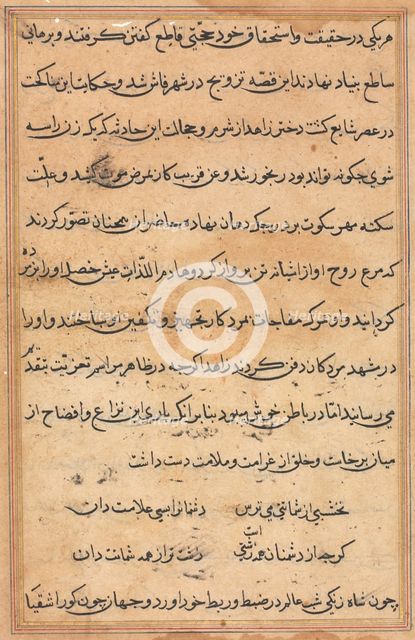 هر یکی در حقیقت و استحقاق خود حجتی قاطع گفتن گرفتند و برهانی
ساطع بنیاد نهادند این قصه تزویج در شهر فاش شد و حکایت این مناکحت
در عصر شایع گشت دختر زاهد از شرم و خجالت این حادثه که یک زن را سه
شوی چگونه تواند بود رنجور شد و عن قریب کار بمرض موت کشید و علت
سکته مهر سکوت بر درجک دهان نهاد و حاضران همچنان تصور کردند
که مرغ روح او از آشیانه تن پرواز کرد و هادم اللذات عیش خصد او را بزیر
کردانید و و مرک مفاجات مرد کار تجهیز و تکفین او ساختند و او را
در مشهد مردکان دفن کردند زاهد اگرچه در ظاهر مراسم تعزیت بتقدیم
می رسانید اما در باطن خوش میبود بنا بر آنکه باری این نزاع و افضاح از
میان برخاست و خلق از غرامت و ملامت دست داشت
نخشبی از شماتتی می ترس دشمنان را سبی علامت دان
گرچه از دشمنان همه زشتی است زشت تر از همه شماتت دان
چون شاه زنکی شب عالم در ضبط و ربط خود آورد و جهان چون کور اشقیا
Heritage
Heritage
Heritage
Heritage
©